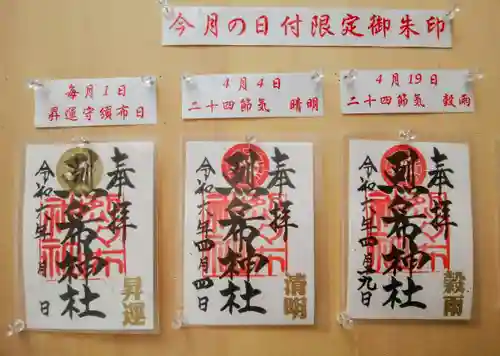 今月の日付限定御朱印
毎月1日
昇運守頒布日
4月4日
二十四節気 晴明
4月19日
二十四節気 穀雨
奉拝
烈々布神社
令和六年四月 日
昇運
奉拝
烈々布神社
令和六年四月四日
清明
奉拝
烈々布神社
令和六年四月十九日
穀雨